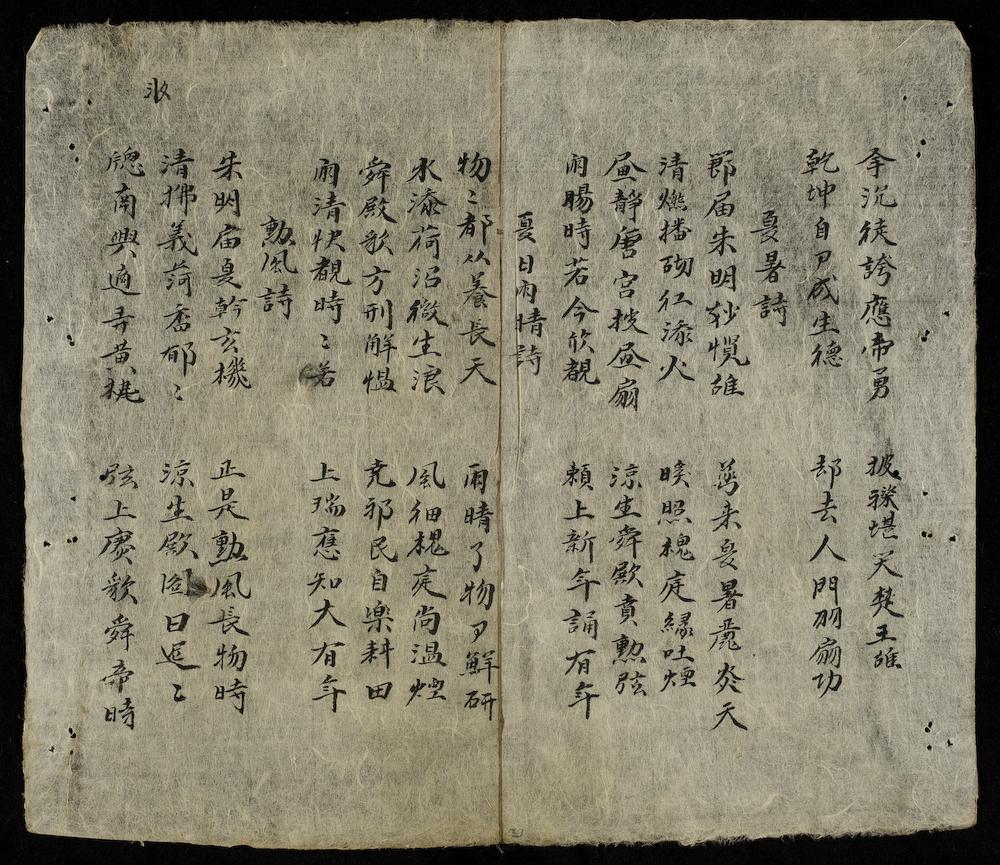 沉徒誇應帝勇 披襟堪笑楚王雄
乾坤自成生德 却去人間羽扇功
夏暑詩
届朱明 来夏暑麗炎天
清燃播砌紅添火 暎照槐庭緑吐煙
昼静唐宮披昼扇 涼生舜殿賁勲弦
雨暘時若今欣覩 頼上新年誦有年
夏日雨晴詩
物〻都从養長天 雨晴了物鮮研
水添荷沼微生浪 風細槐庭尚温煙
舜殿歌方刑解愠 尭郊民自樂耕田
雨清快覩時〻若 上瑞應知大有年
勲風詩
朱明届夏斡玄機 正是勲風長物時
清拂義荷香郁〻 涼生殿閣日遅〻
牕南興適弄黄 弦上賡歌舜帝時
收